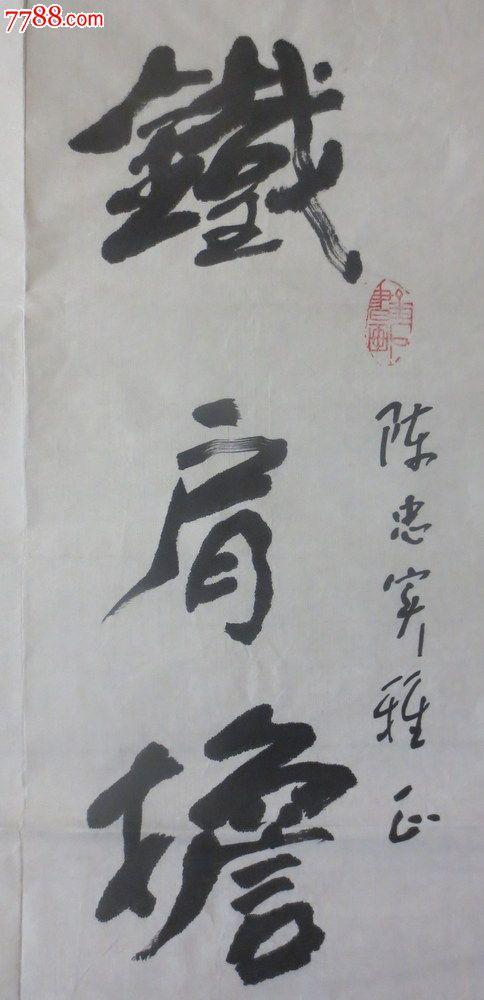 7788.com
鐵肩擔
陈忠实雅正